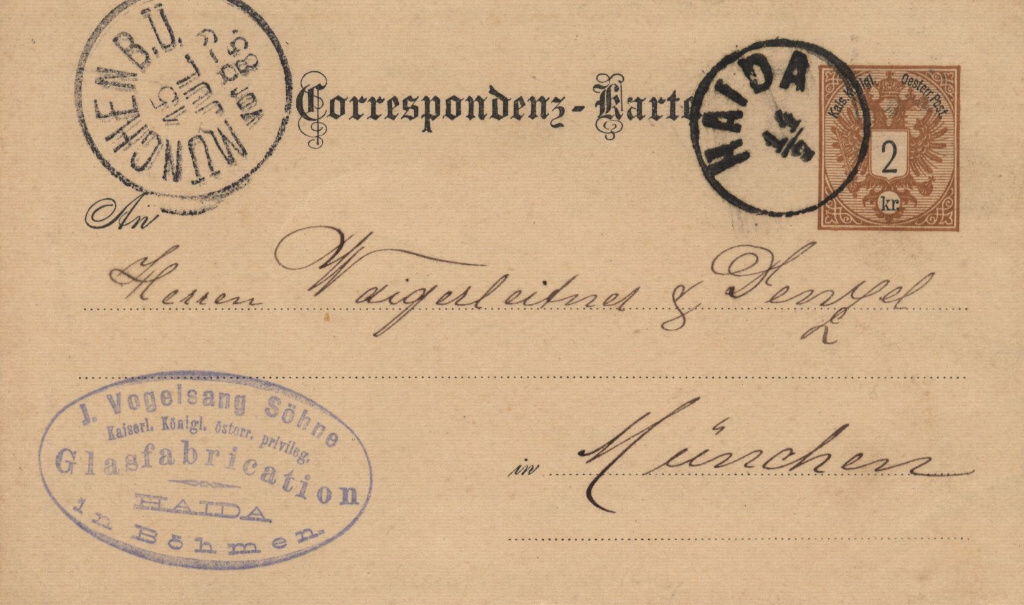 MÜNCHEN B.Ü.
15
JUL
VOR 8-9
85.
Correspondenz-Karte
HAIDA
14/7
Kais. Königl. Oesterr. Post.
2
kr.
An
Herren Waigerleitner & Denzel
J. Vogelsang Söhne
Kaiserl. Königl. österr. privileg.
Glasfabrication
HAIDA
in Böhmen.
in München